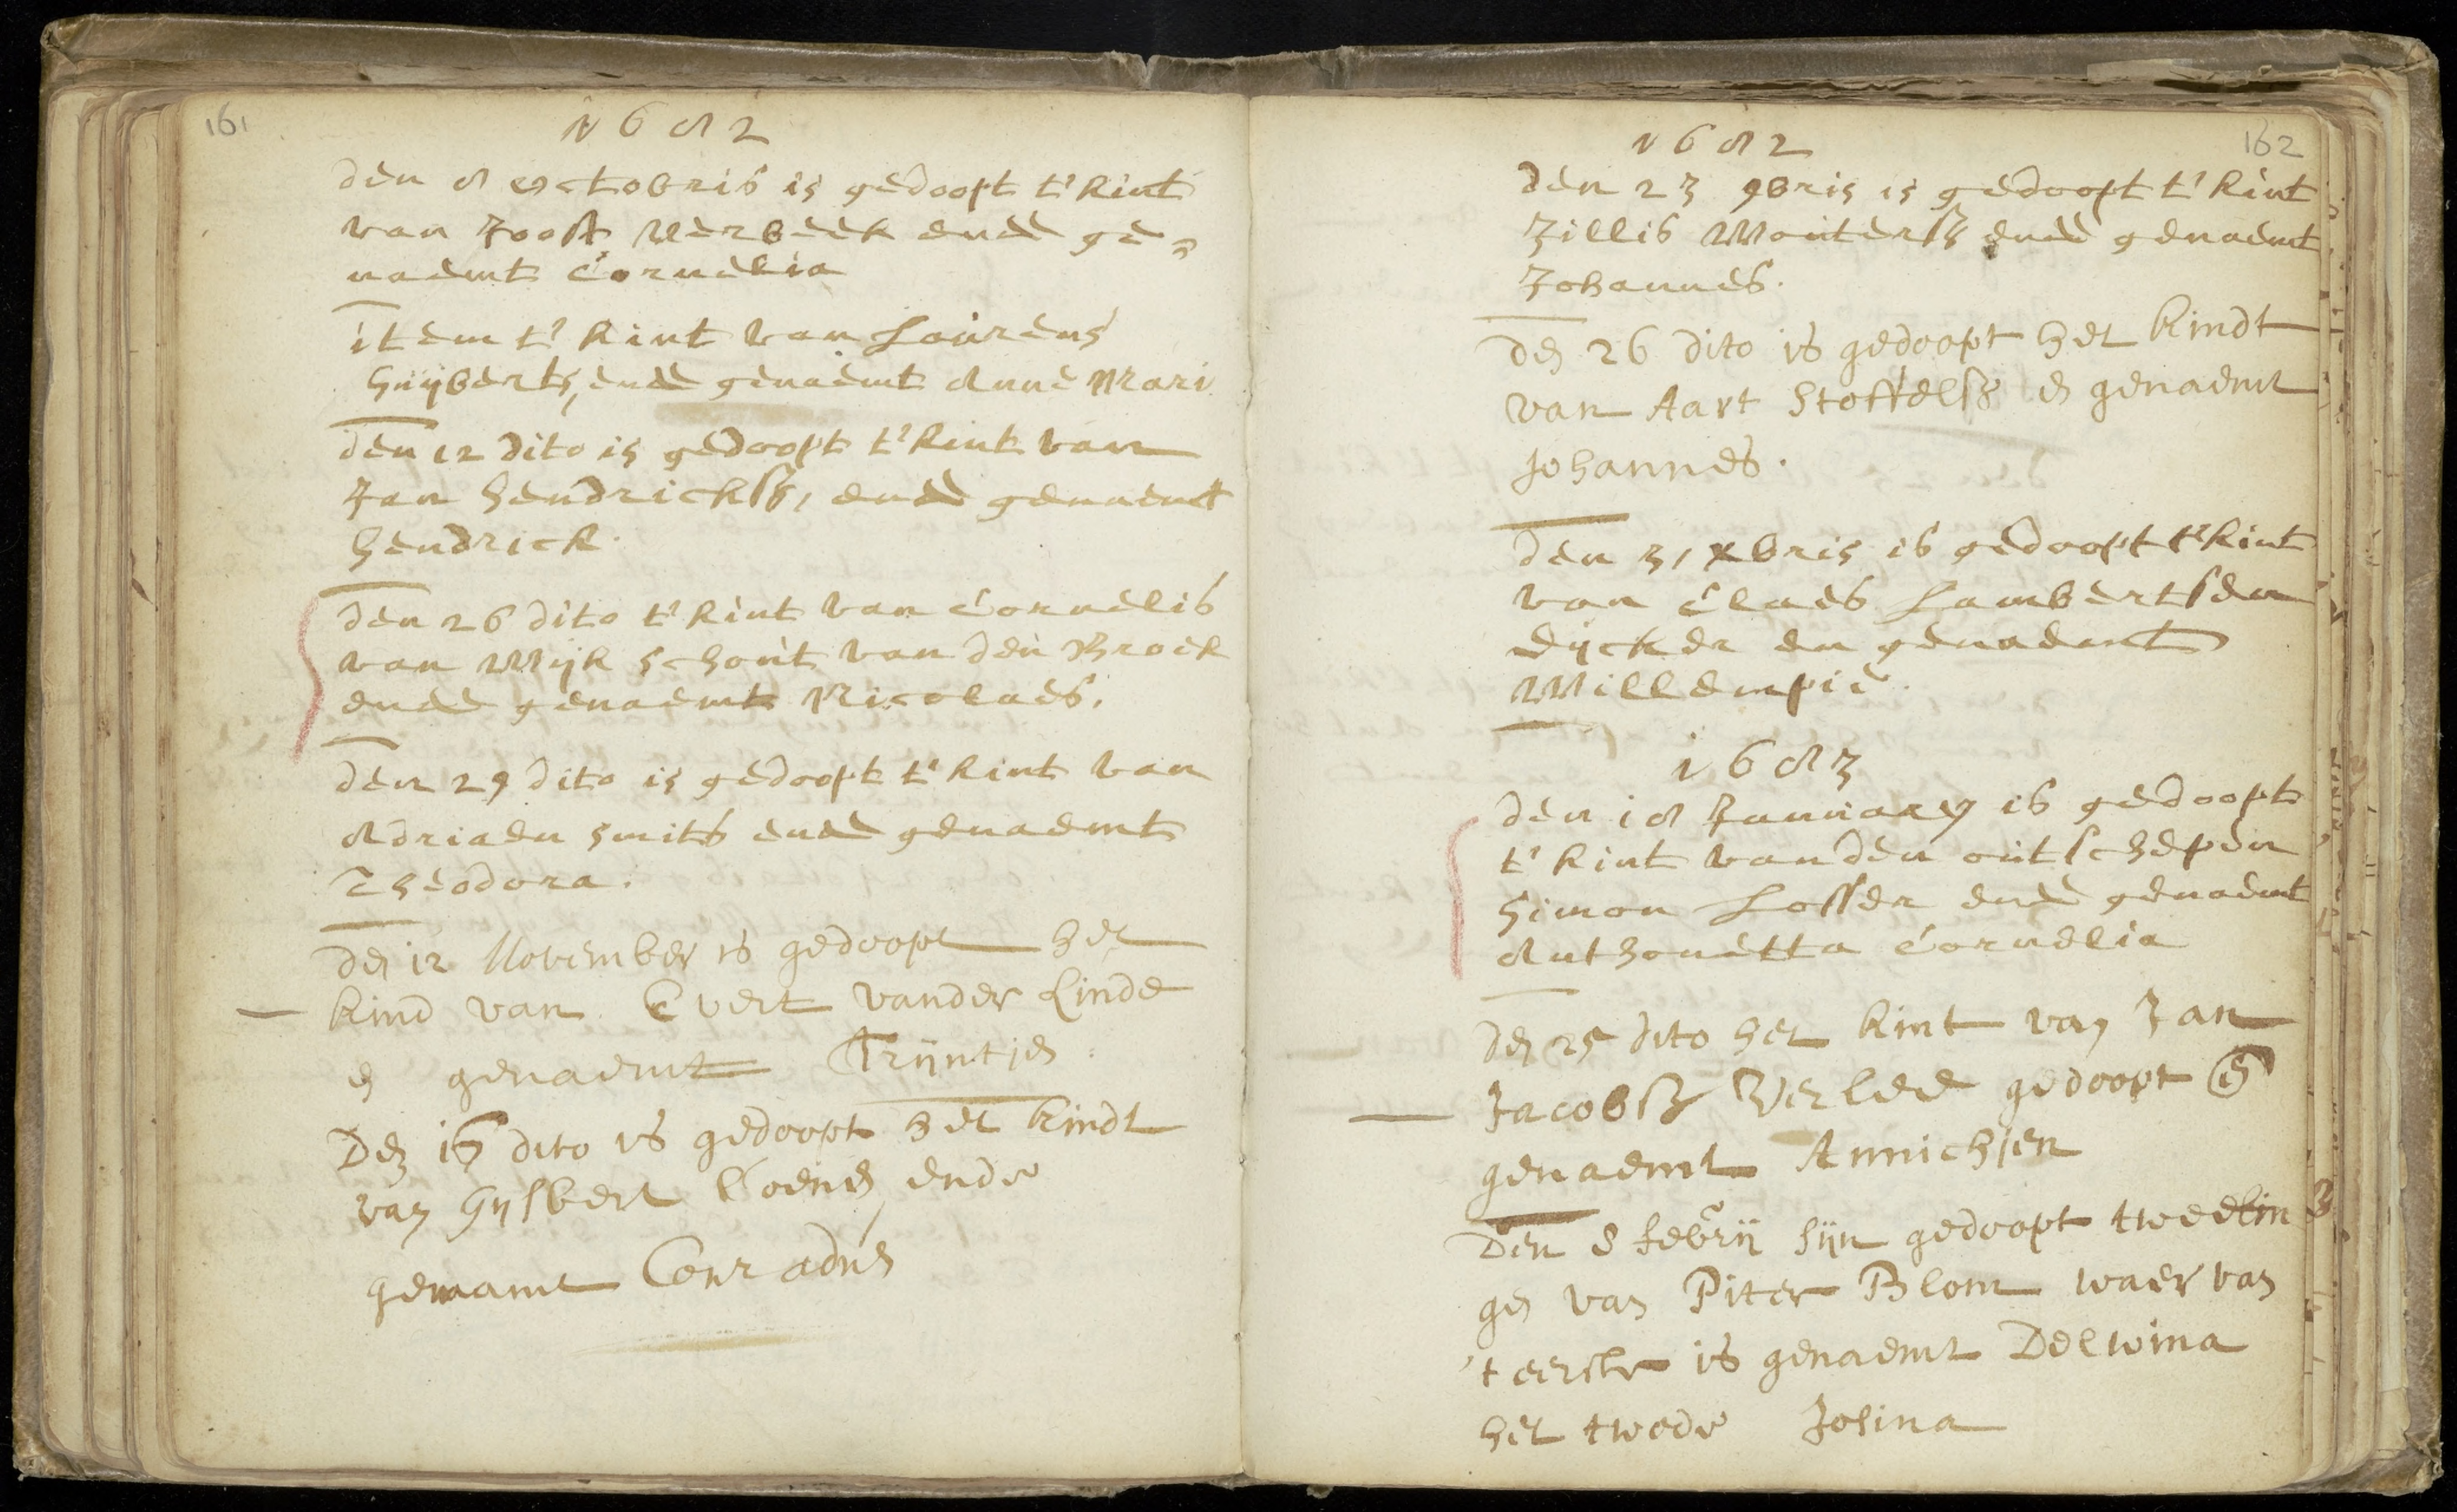 161
1682
den 8 octobris is gedoopt t' kint
van Joost Verbeek ende ge=
naemt Cornelia
item t' kint van Lourens
huijberts, ende genaemt Anne Mari
den 12 dito is gedoopt t' kint van
Jan hendrickss, ende genaemt
hendrick.
den 26 dito t' kint van Cornelis
van Wijk schout van den Broek
ende genaemt Nicolaes.
den 29 dito is gedoopt t' kint van
Adriaen smits ende genaemt
Theodora.
den 12 November is gedoopt het
kind van Evert vander Linde
en genaemt Trijntjen
Den 15 dito is gedoopt het kindt
van Gijsbert Coenen ende
genaamt Conradus
162
1682
den 23 9bris is gedoopt t' kint
Jillis Woutersz ende genaemt
Johannes.
den 26 dito is gedoopt het kindt
van Aart Stoffelsz en genaemt
Johannes.
den 31 xbris is gedoopt t' kint
van Claes Lambertsen
dijcker en genaemt
Willempie.
1683
den 18 January is gedoopt
t' kint van den outschepen
Simon Losser ende genaemt
Anthonetta Cornelia
den 25 dito het kint van Jan
Jacobsz Verlee gedoopt en
genaemt Annichjen
Den 8 febrij sijn gedoopt tweelin
gen van Piter Blom waer van
't eerste is genaemt Delwina
het twede Josina